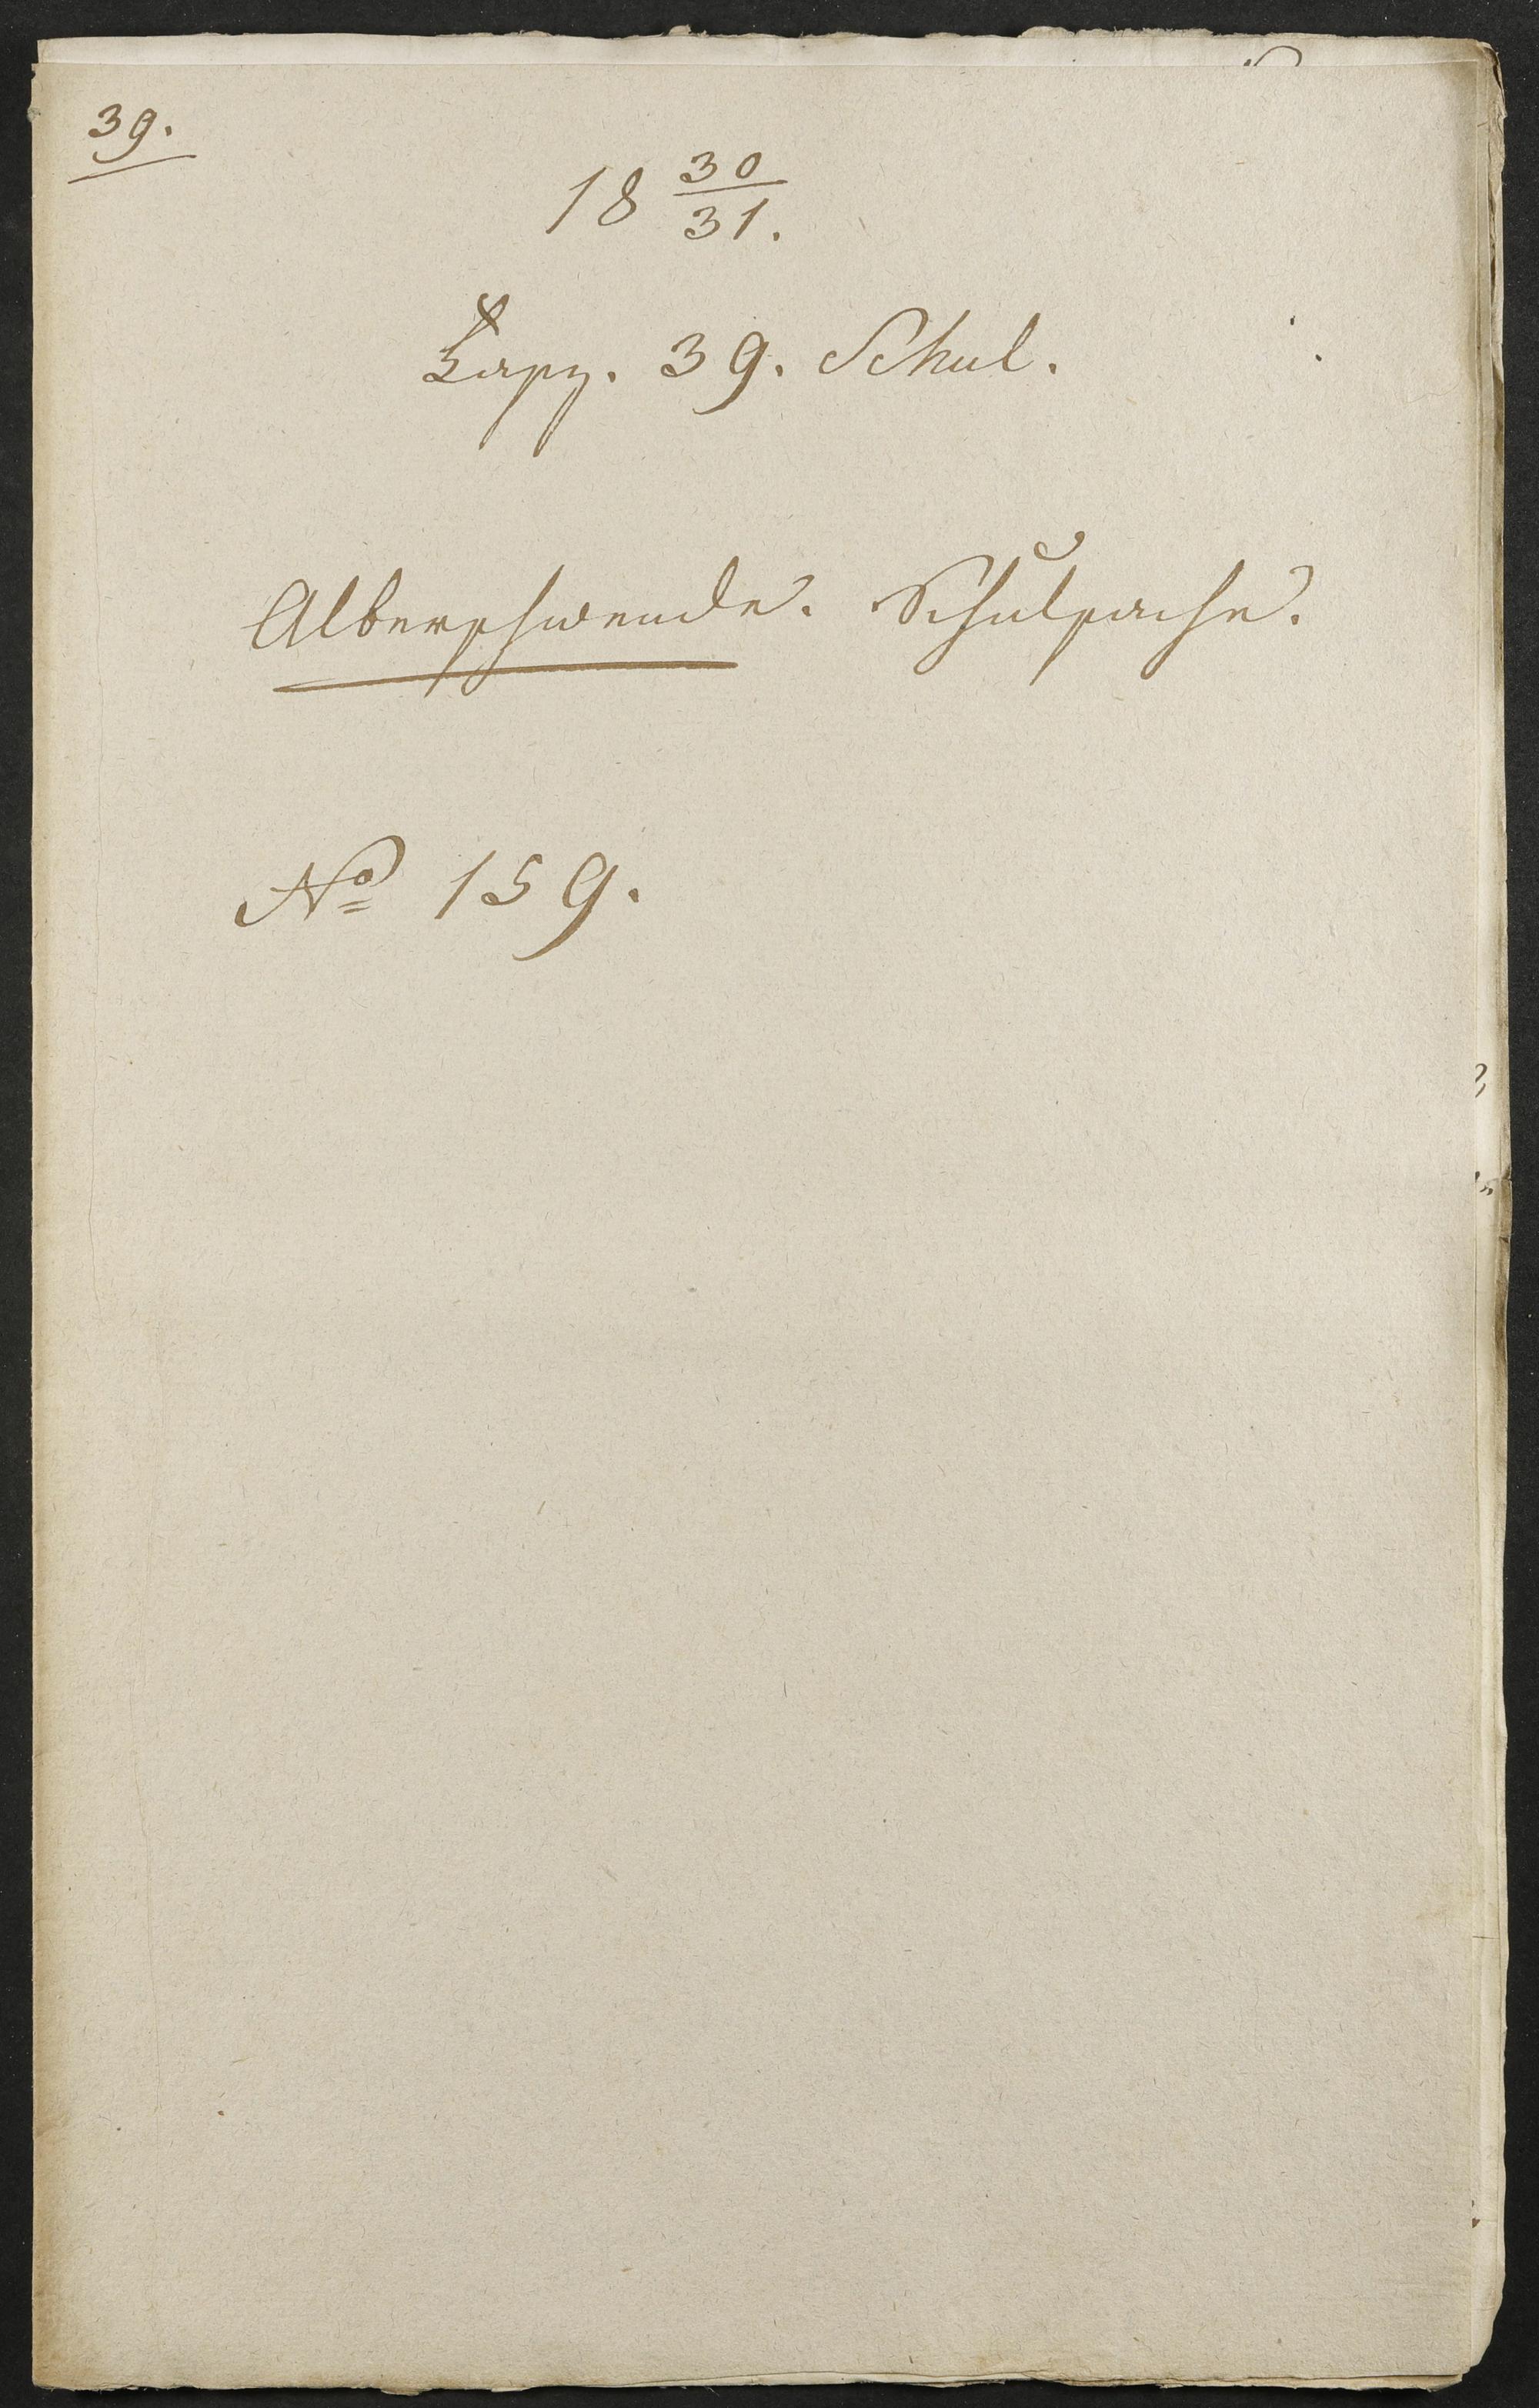 39.
18 30/31.
Fasz. 39. Schul.
Alberschwende. Schulsache.
No 159.